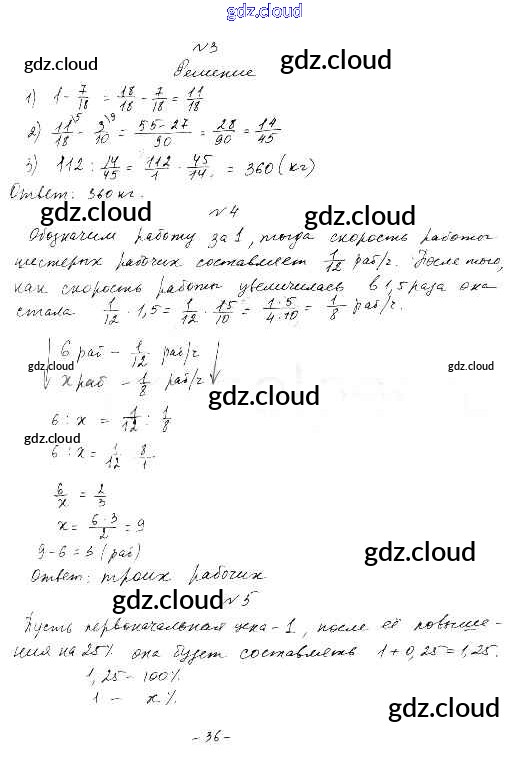 gdz.cloud
№3
gdz.cloud gdz.cloud
Решение
1) 1 - 7/18 = 18/18 - 7/18 = 11/18
2) 11/18 \5 - 3/10 \9 = 55-27/90 = 28/90 = 14/45
3) 112 : 14/45 = 112/1 · 45/14 = 360 (кг)
Ответ: 360 кг.
gdz.cloud №4 gdz.cloud
Обозначим работу за 1, тогда скорость работы
шестерых рабочих составляет 1/12 раб/г. После того,
как скорость работы увеличилась в 1,5 раза она
стала 1/12 · 1,5 = 1/12 · 15/10 = 1·5/4·10 = 1/8 раб/г.
gdz.cloud
6 раб - 1/12 раб/г
gdz.cloud gdz.cloud
x раб - 1/8 раб/г
gdz.cloud
6 : x = 1/12 : 1/8
gdz.cloud
6 : x = 1/12 · 8/1
6/x = 2/3
x = 6·3/2 = 9
9-6=3 (раб)
gdz.cloud
Ответ: троих рабочих
gdz.cloud №5
Пусть первоначальная цена - 1, после её повыше-
ния на 25% она будет составлять 1+0,25=1,25.
1,25 - 100%
1 - x%.
gdz.cloud gdz.cloud
- 36 -